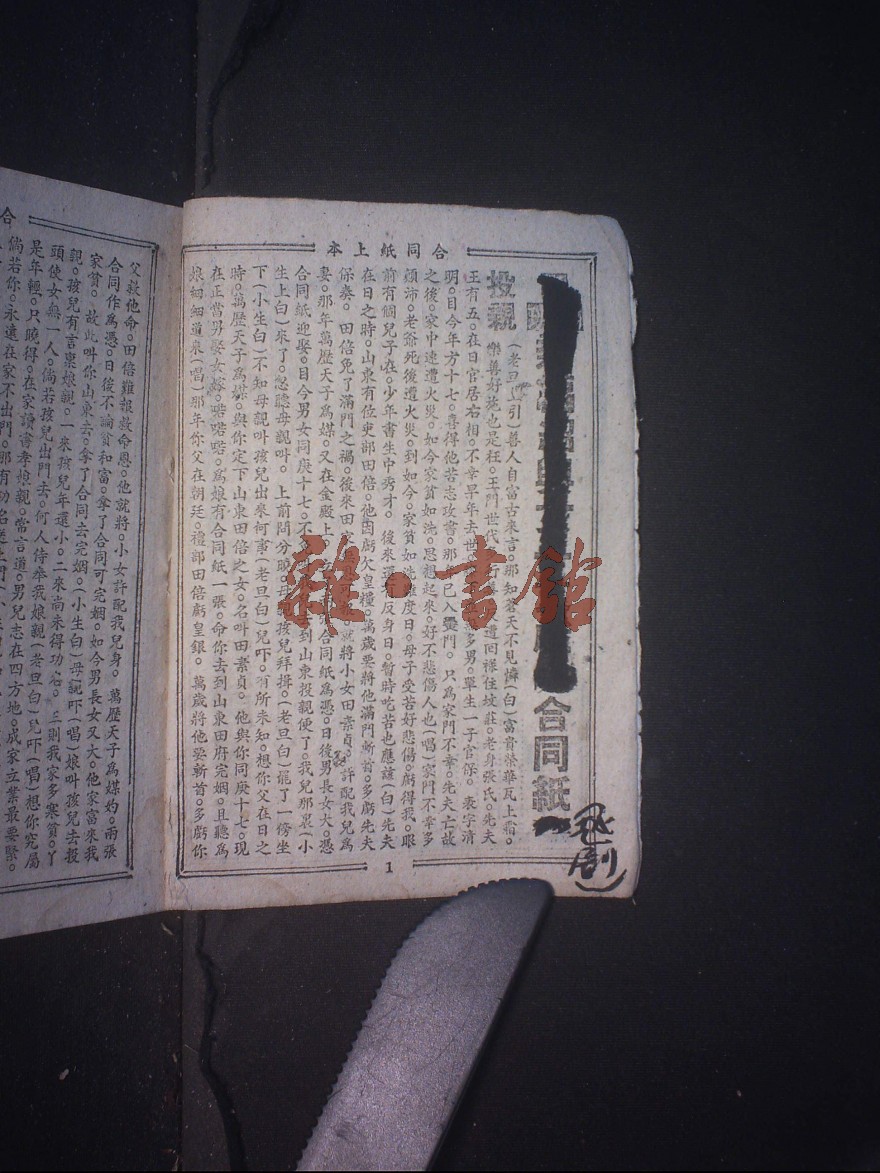 合同紙上本
合同紙
越劇
投親
(老旦上引)善人自富古來言。那知蒼天不見憐(白)富貴榮華瓦上霜。
樂善好施也是枉。王門世代 遭回祿住坟莊。老身張氏。先夫
王有五。在日官居右相。不幸早年去世 多男。單生一子官保。表字清
明。目今年方十七。喜得他苦志攻書。那 已入黌門。只爲家門不幸。先夫亡故
之後。家中速遭火災。如今家貧如洗。思想起來。好不悲傷人也(唱)家門不幸多
顛沛。老爺死後遭火災。到如今。家貧如洗難度日。母子受苦好悲傷。虧得我。眼
前有個兒子在。少年書生中秀才。後來 反身日。暫時吃苦也應該(白)先夫
在日之時。山東有位吏部田倍。他因虧欠皇糧。萬歲要將他滿門斬首。多虧先夫
保奏。田倍免了滿門之禍。後來田 就將小女田素貞。許配我兒爲
妻。那年萬歷天子爲媒。又在金殿上 合同紙爲憑。日後男長女大。憑
合同紙迎娶。目今男女同庚十七。不 到山東投親便了。我兒那里(小
生上白)來了。忽聽母親叫。上前問分曉。母親 孩兒拜揖。(老旦白)罷了一傍坐
下(小生白)不知母親叫孩兒出來何事(老旦白)兒吓。有所未知。想你父在日之
時。萬歷天子爲媒。與你定下山東田倍之女。名叫田素貞。他與你同庚十七。現
在正當男娶女嫁。喏喏喏。爲娘有合同紙一張。命你去到山東田府完姻。且聽爲
娘細細道來(唱)那年你父在朝廷。禮部田倍虧皇銀。萬歲將他要斬首。多虧你
1
合
父殺他命。田倍難報救命恩。他就將。小女許配我兒身。萬歷天子爲媒妁。兩張
合同作爲憑。日後不論貧和富。拿了合同可完姻。如今男長女又大。他家富來我
家貧。故此叫你山東去。拿了合同去完姻。(小生白)母親吓(唱)娘叫孩兒去投
親。孩兒有言禀娘親。一來孩兒年還小。二來尚未得功名。三則我家多寒貧。丫
頭使女無一人。倘若孩兒出門去。何人侍奉我娘親(老旦白)兒吓(唱)想你究屬
是年輕。只曉得。在家讀書孝娘親。當言道。男兒志在四方地。成家立業最要緊。
倘若你。永遠在家不出門。那有功名